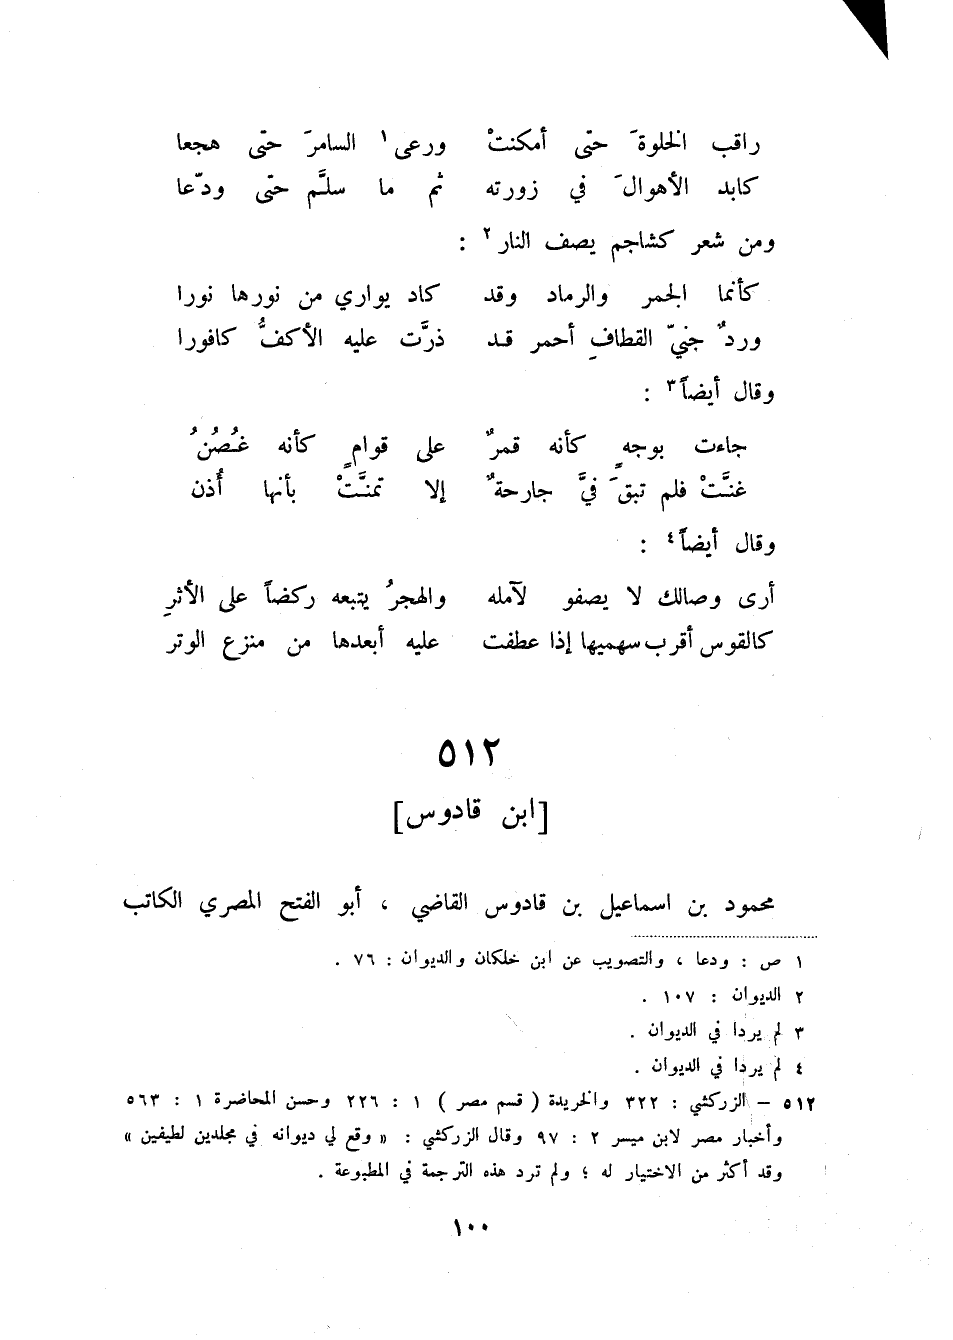 راقب الخلوةَ حتّى أمكنتْ ورعى١ السامرَ حتّى هجعا
كابد الأهوالَ في زورته ثم ما سلَّم حتّى ودّعا
ومن شعر كشاجم يصف النار٢ :
كأنما الجمر والرماد وقد كاد يواري من نورها نورا
وردٌ جنيّ القطافِ أحمر قد ذرَّت عليه الأكفُّ كافورا
وقال أيضاً٣ :
جاءت بوجهٍ كأنه قمرٌ على قوامٍ كأنه غُصُنُ
غنَّتْ فلم تبقَ فيَّ جارحةٌ إلا تمنَّتْ بأنها أُذن
وقال أيضاً٤ :
أرى وصالك لا يصفو لآمله والهجرُ يتبعه ركضاً على الأثرِ
كالقوس أقرب سهميها إذا عطفت عليه أبعدها من منزع الوتر
٥١٢
[ابن قادوس]
محمود بن اسماعيل بن قادوس القاضي ، أبو الفتح المصري الكاتب
١ ص : ودعا ، والتصويب عن ابن خلكان والديوان : ٧٦ .
٢ الديوان : ١٠٧ .
٣ لم يردا في الديوان .
٤ لم يردا في الديوان .
٥١٢ – الزركشي : ٣٢٢ والخريدة ( قسم مصر ) ١ : ٢٢٦ وحسن المحاضرة ١ : ٥٦٣
وأخبار مصر لابن ميسر ٢ : ٩٧ وقال الزركشي : « وقع لي ديوانه في مجلدين لطيفين »
وقد أكثر من الاختيار له ؛ ولم ترد هذه الترجمة في المطبوعة .
١٠٠